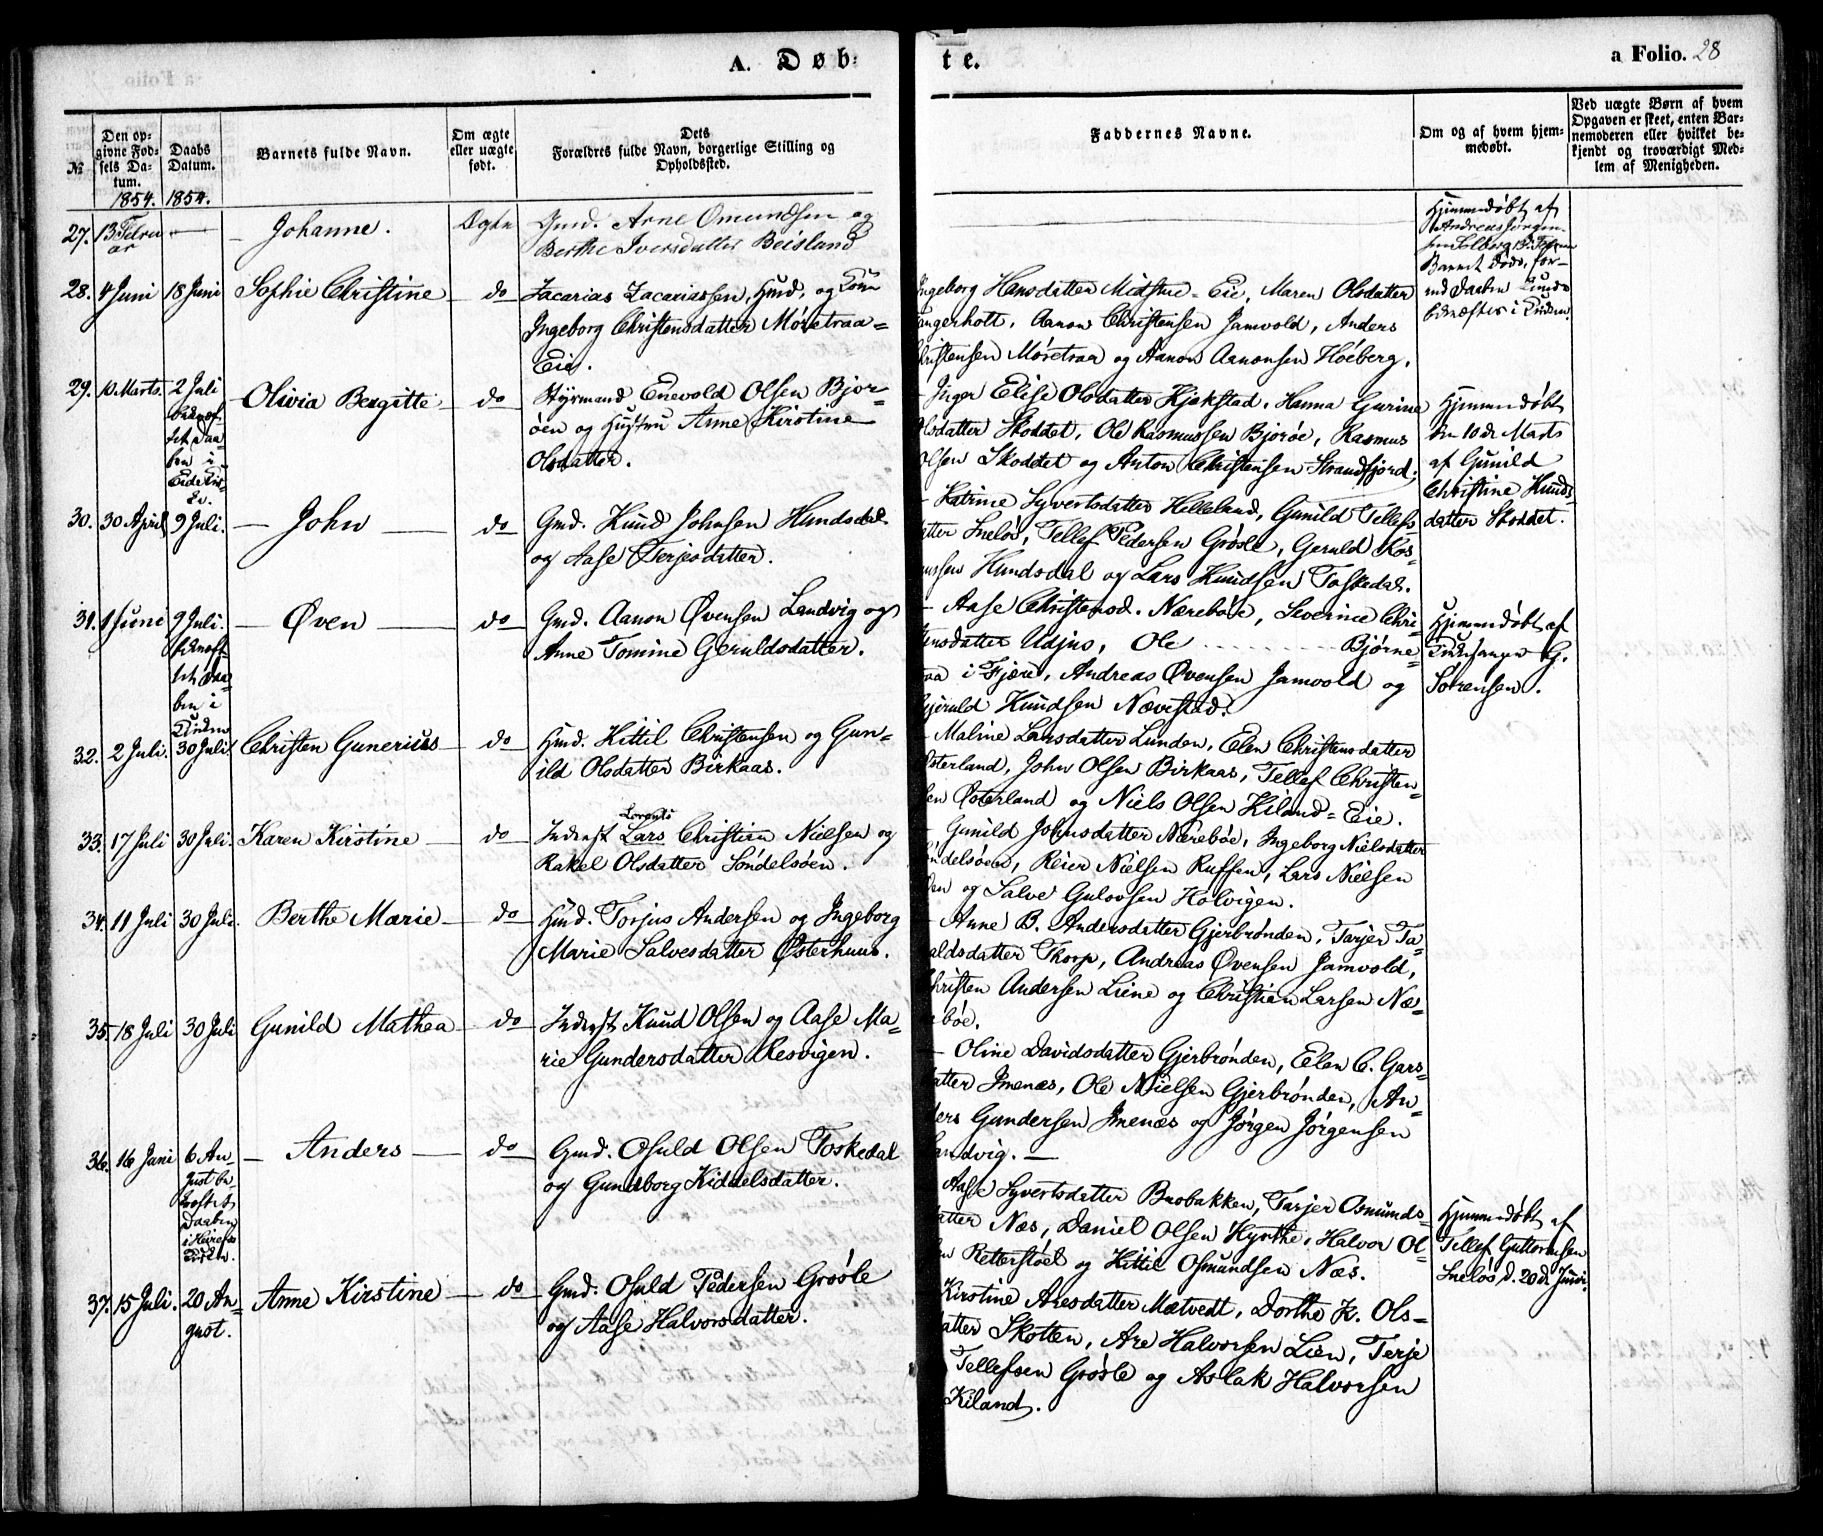 A. Døb-
te.
a Folio. 28
№
Den op-
givne Fød-
sels Da-
tum.
1854.
Daabs
Datum.
1854.
Barnets fulde Navn.
Om ægte
eller uægte
født.
Dets
Forældres fulde Navn, borgerlige Stilling og
Opholdssted.
Faddernes Navne.
Om og af hvem hjem-
medøbt.
Ved uægte Børn af hvem
Opgaven er skeet, enten Bar-
nemoderen eller hvilket be-
kjendt og troværdigt Med-
lem af Menigheden.
27. 13 Febru
ar
Johanne.
Ægte
Gmd. Arne Omundsen og
Berthe Iversdatter Beisland
Hjemmedøbt af
Andreas Jørgen-
Barnet døde, for-
ind Daaben
28. 4 Juni 18 Juni Sophie Christine do Zacarias Zacariassen, Hmd. og Kone
Ingeborg Christensdatter Møretraa=
Eie.
Ingeborg Hansdatter Midstue-Eie, Maren Olsdatter
angerholt, Aanon Christensen Jamvold, Anders
Christensen Møretraa og Aanon Aanonsen Høeberg.
29. 10 Marts. 2 Juli
bekræf-
tet Daa
ben i
Eide Kir-
ke.
Olivia Bergitte do Styrmand Enevold Olsen Bjor-
øen og Hustru Anne Kirstine
Olsdatter.
Inger Elise Olsdatter Kjekstad, Hanna Gurine
Olsdatter Skoddet, Ole Rasmussen Bjorøe, Rasmus
Olsen Skoddet og Anton Christensen Strandfjord.
Hjemmedøbt
den 10de Marts
af Gunild
Christine Knuds
datter Skoddet.
30. 30 April 9 Juli. John do Gmd. Knud Johnsen Hundsdal
og Aase Terjesdatter.
Katrine Syvertsdatter Helleland, Gunild Tellefs
atter Sneløs, Tellef Pedersen Grøsle, Geruld Ros-
mussen Hundsdal og Lars Knudsen Toskedal.
31. 1 Juni 9 Juli.
bekræft-
tet Daa-
ben i
Kirken
Øven do Gmd. Aanon Øvensen Landvig og
Anne Tomine Geruldsdatter.
Aase Christensd. Nærebøe, Severine Chri-
stensdatter Udjus, Ole ........ Bjørne-
raa i Fjære, Andreas Øvensen Jamvold og
Gjeruld Knudsen Nævestad.
Hjemmedøbt af
Kirkesanger G.
Sørensen.
32. 2 Juli. 30 Juli. Christen Gunerius do Hmd. Kittil Christensen og Gun-
ild Olsdatter Birkaas.
Maline Larsdatter Lunden, Elen Christensdatter
Østerland, John Olsen Birkaas, Tellef Christen-
sen Østerland og Niels Olsen Kiland-Eie.
33. 17 Juli 30 Juli. Karen Kirstine do Inderst Lars Christian Nielsen og
Lorents
Rakel Olsdatter Søndelsøen.
Gunild Johnsdatter Nærebøe, Ingeborg Nielsdatter
ndelsøen, Reier Nielsen Ruffen, Lars Nielsen
den og Salve Gulovsen Holvigen.
34. 11 Juli 30 Juli. Berthe Marie do Hmd. Torjus Andersen og Ingeborg
Marie Salvesdatter Østerhuus.
Anne B. Andersdatter Gjerbrønden, Tarjer Ta-
aldsdatter Thorp, Andreas Øvensen Jamvold,
Christen Andersen Liene og Christian Larsen Næ-
bøe.
35. 18 Juli 30 Juli Gunild Mathea do Inderst Knud Olsen og Aase Ma-
rie Gundersdatter Resvigen.
Oline Davidsdatter Gjerbrønden, Elen C. Gars-
datter Imenæs, Ole Nielsen Gjerbrønden, An-
ders Gundersen Imenæs og Jørgen Jørgensen
Landvig.
36. 16 Juni 6 Au-
gust be
kræftet
Daaben
i Heirefos
Kirken.
Anders do Gmd. Osuld Olsen Toskedal
og Gundborg Kiddelsdatter.
Aase Syvertsdatter Buobakken, Tarjer Osmunds-
datter Næs, Daniel Olsen Hyrthe, Halvor Ol-
sen Retterstøel og Kittil Osmundsen Næs.
Hjemmedøbt af
Tellef Guttormsen
Sneløs d. 20de Juni.
37. 15 Juli. 20 Au-
gust.
Anne Kirstine do Gmd. Osuld Pedersen Grøsle
og Aase Halvorsdatter.
Kirstine Aresdatter Mætvedt, Dorthe K. Ols-
datter Skotten, Are Halvorsen Lien, Terje
Tellefsen Grøsle og Aslak Halvorsen
Kiland.